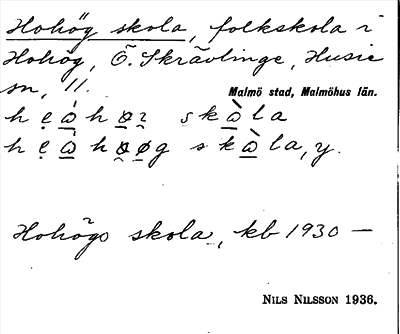 Hohög skola, folkskola i
Hohög, Ö. Skrävlinge, Husie
sn, 11.
Malmö stad, Malmöhus län.
skὰla
skὰla, y.
Hohögs skola, kb 1930 —
NILS NILSSON 1936.